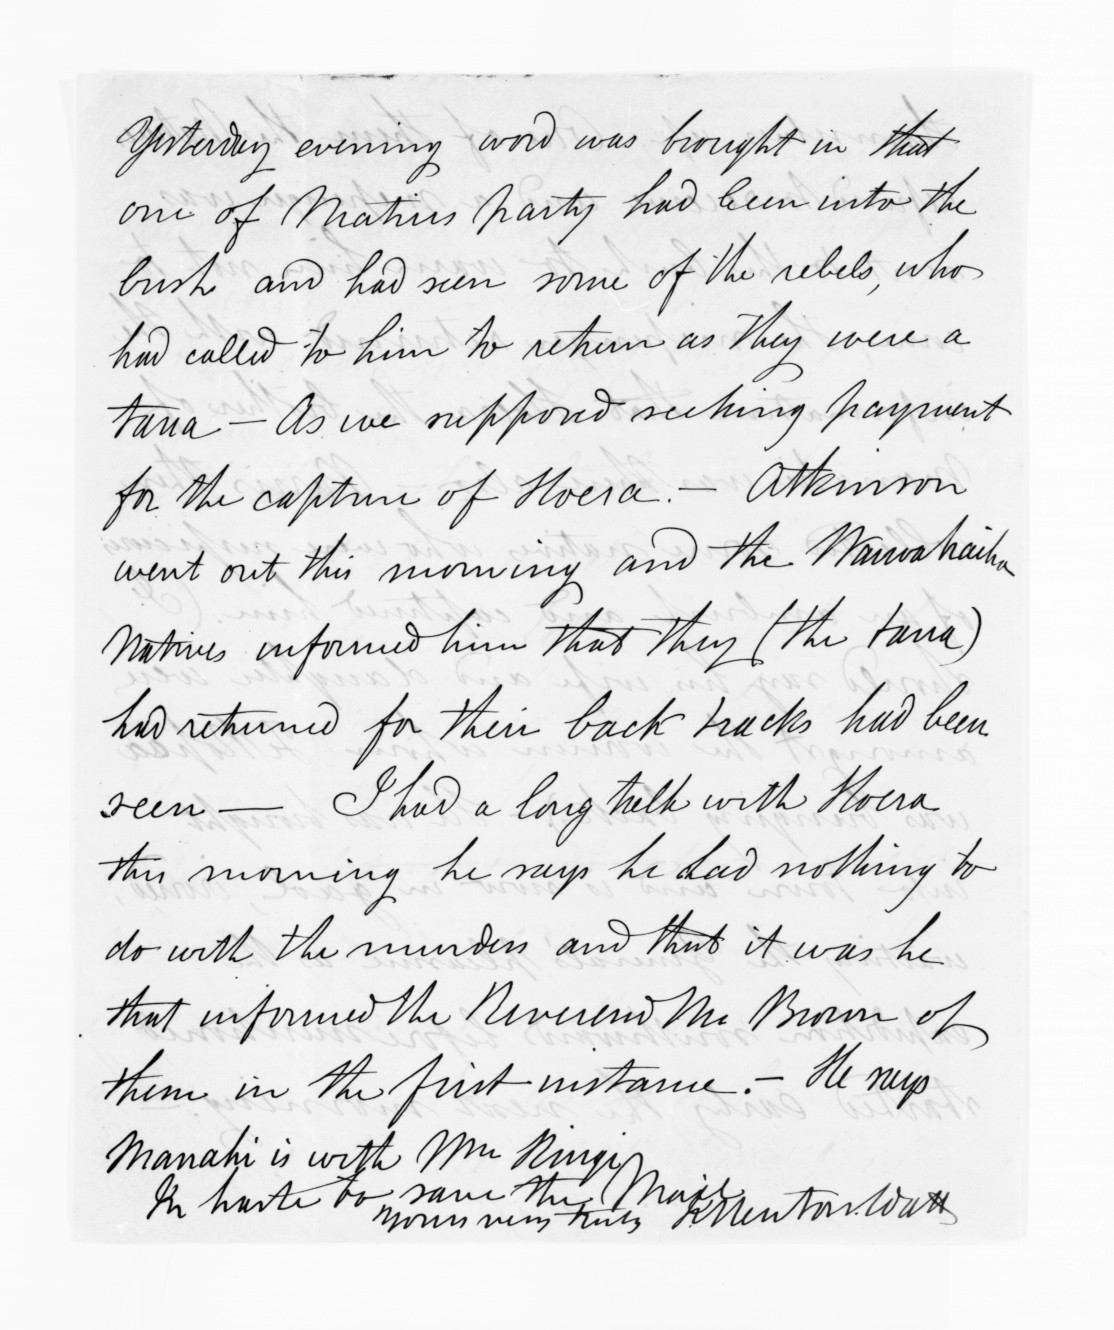 Yesterday evening word was brought in that
one of Matius party had been into the
bush and had seen some of the rebels, who
had called to him to return as they were a
taua — As we supposed seeking payment
for the capture of Hoera. — Atkinson
went out this morning and the
Natives informed him that they (the taua)
had returned for their back tracks had been
seen — I had a long talk with Hoera
this morning he says he had nothing to
do with the murders and that it was he
that informed the Reverend Mr Brown of
them in the first instance. — He says
Manahi is with Wm Kingi
In haste to save the Mail
Yours very truly